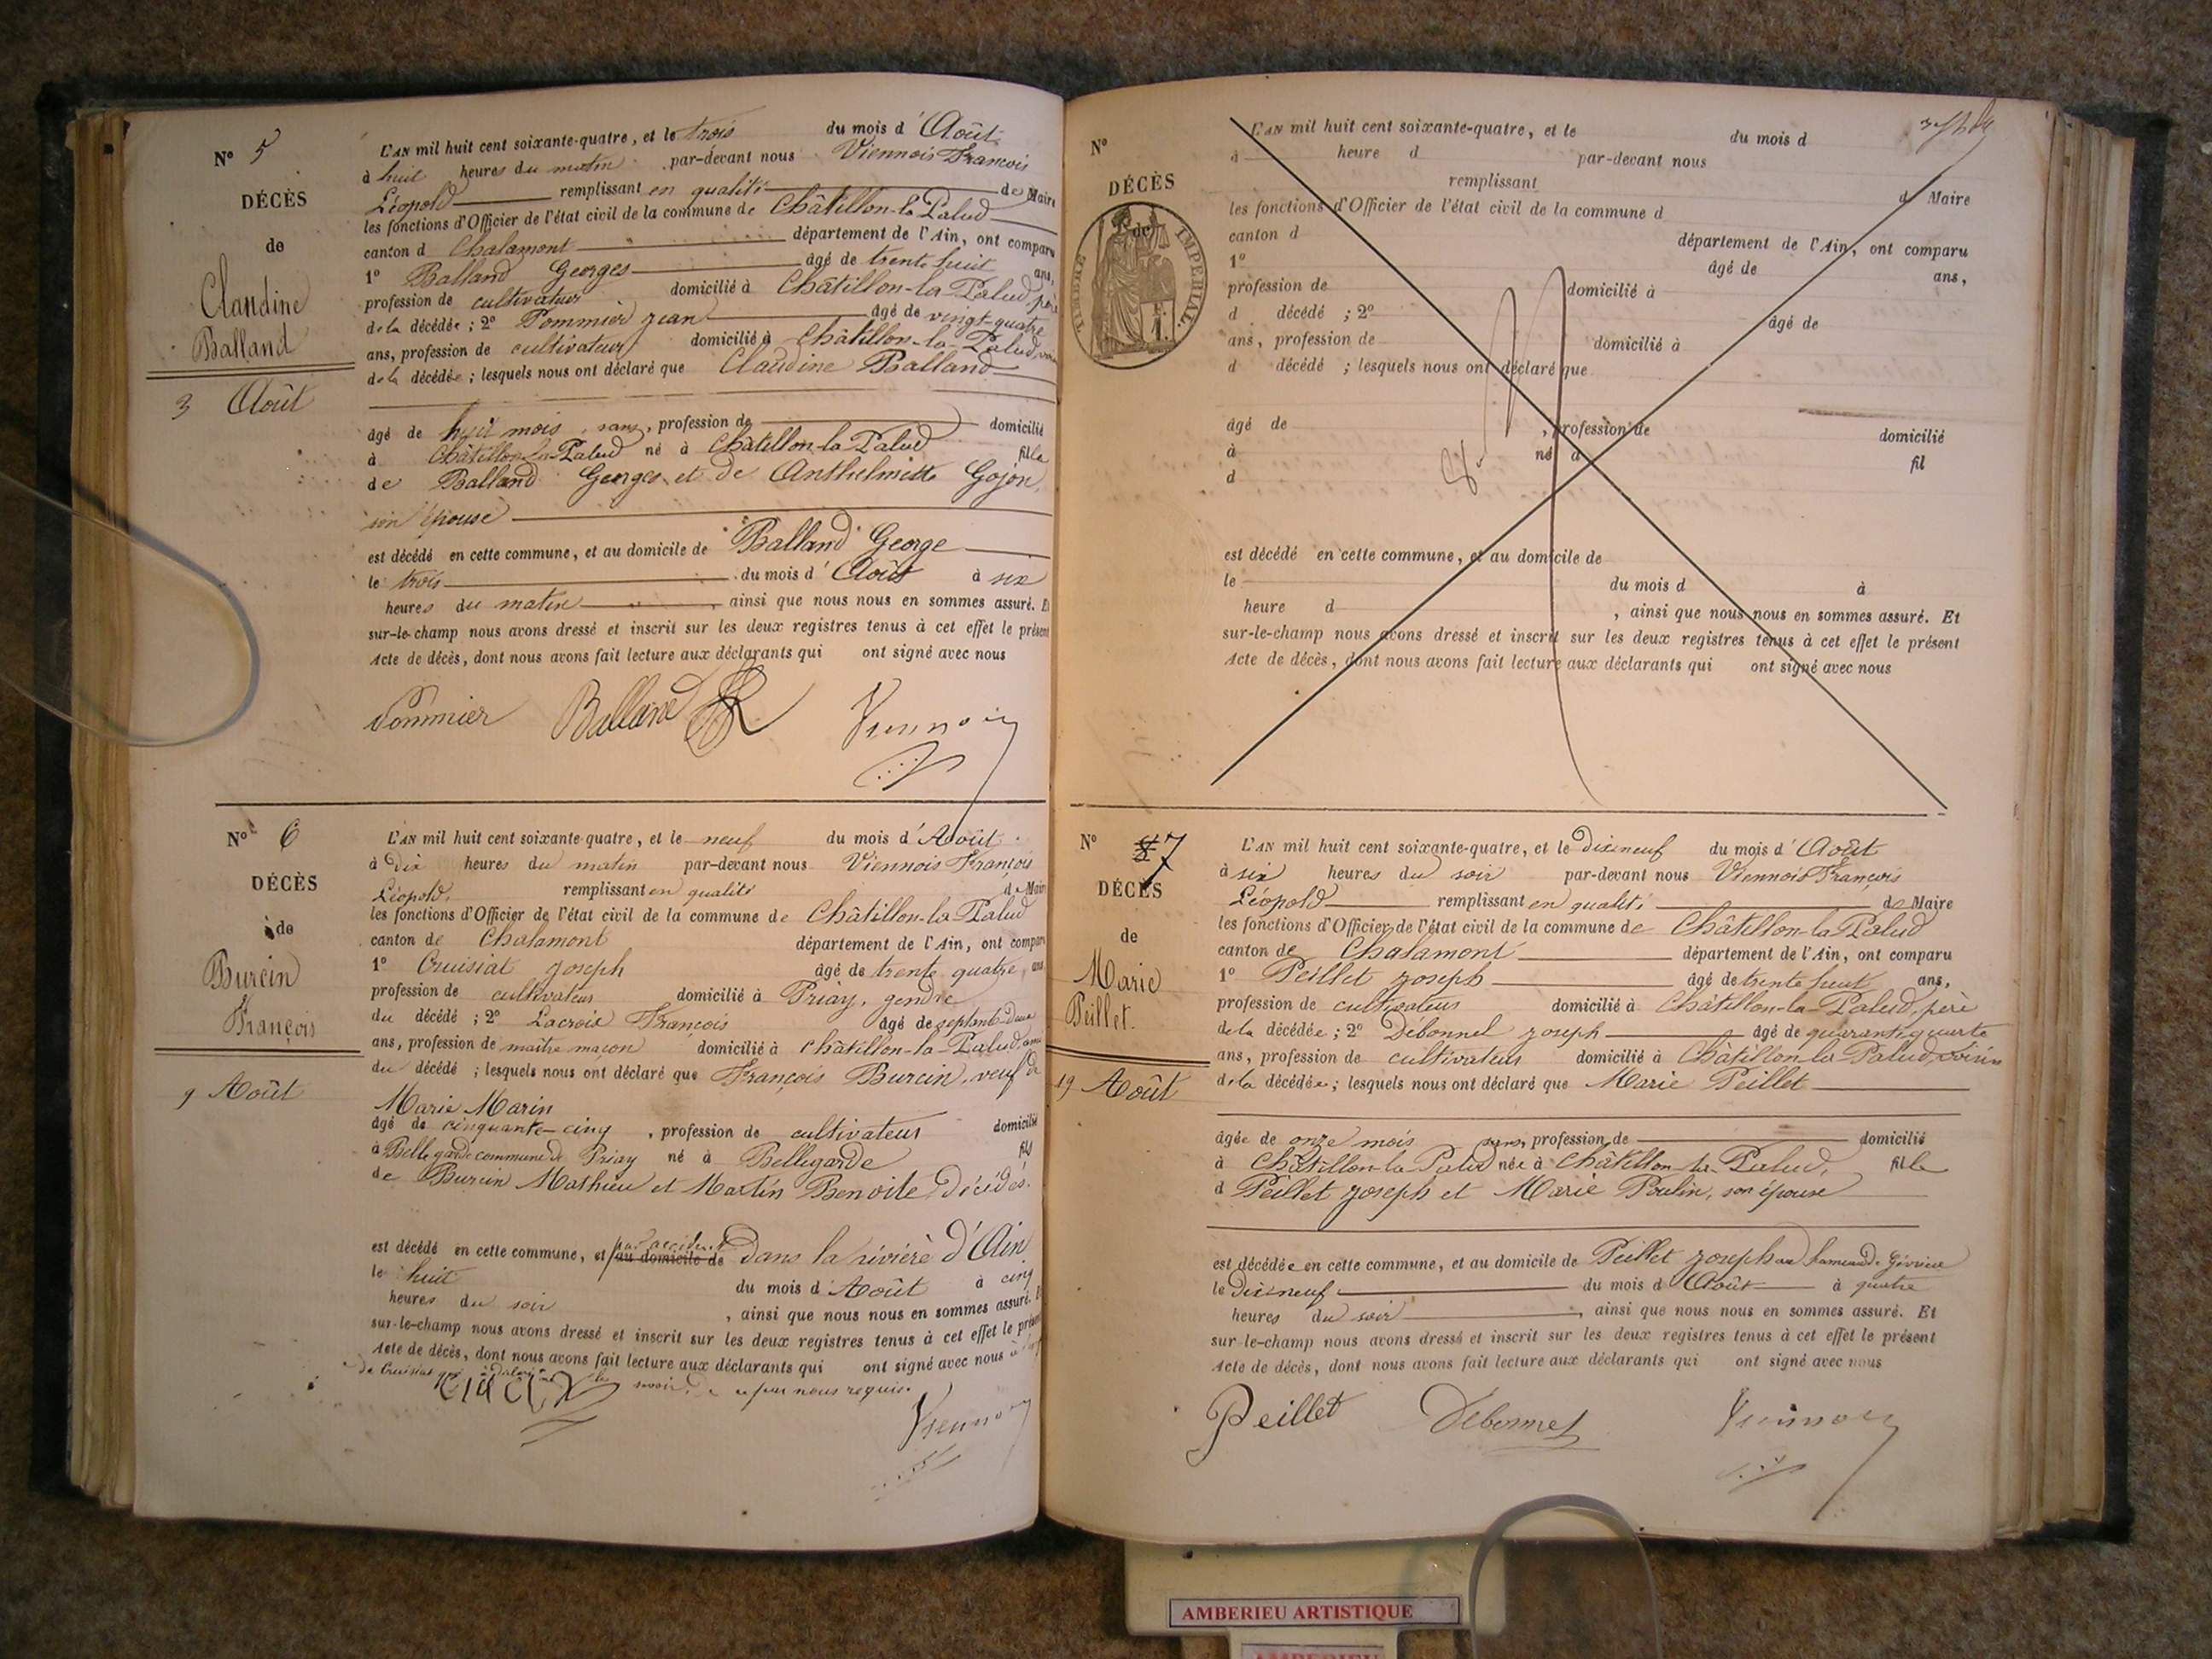 N° 5
DÉCÈS
de
Claudine
Balland
3 Août
L'AN mil huit cent soixante-quatre, et le trois du mois d'Août
à huit heures du matin par-devant nous Viennois François
Léopold remplissant en qualité de Maire
les fonctions d'Officier de l'état civil de la commune de Châtillon-la-Palud
canton d Chalamont département de l'Ain, ont comparu
1° Balland Georges âgé de trente huit ans,
profession de cultivateur domicilié à Châtillon-la-Palud, père
de la décédée ; 2° Pommier Jean âgé de vingt-quatre
ans, profession de cultivateur domicilié à Châtillon-la-Palud,
de la décédée ; lesquels nous ont déclaré que Claudine Balland
âgé de huit mois, sans, profession de domicilié
à Châtillon-la-Palud né à Châtillon-la-Palud fille
de Balland Georges et de Anthelmette Gojon,
son épouse
est décédé en cette commune, et au domicile de Balland George
le trois du mois d'Août à six
heures du matin, ainsi que nous nous en sommes assuré. Et
sur-le-champ nous avons dressé et inscrit sur les deux registres tenus à cet effet le présent
Acte de décès, dont nous avons fait lecture aux déclarants qui ont signé avec nous
Pommier Balland Viennois
N° 6
DÉCÈS
de
Burcin
François
9 Août
L'AN mil huit cent soixante-quatre, et le neuf du mois d'Août
à dix heures du matin par-devant nous Viennois François
Léopold, remplissant en qualité de Maire
les fonctions d'Officier de l'état civil de la commune de Châtillon-la-Palud
canton de Chalamont département de l'Ain, ont comparu
1° Cruisiat Joseph âgé de trente quatre ans
profession de cultivateur domicilié à Priay, gendre
du décédé ; 2° Lacroix François âgé de septante-deux
ans, profession de maître maçon domicilié à Châtillon-la-Palud, ami
du décédé ; lesquels nous ont déclaré que François Burcin, veuf de
Marie Marin
âgé de cinquante-cinq, profession de cultivateur domicilié
à Bellegarde commune de Priay né à Bellegarde fils
de Burcin Mathieu et Martin Benoite, décédés.
est décédé en cette commune, et par accident au domicile de dans la rivière d'Ain
le huit du mois d'Août à cinq
heures du soir, ainsi que nous nous en sommes assuré. Et
sur-le-champ nous avons dressé et inscrit sur les deux registres tenus à cet effet le présent
Acte de décès, dont nous avons fait lecture aux déclarants qui ont signé avec nous
de Cruisiat savoir de ce par nous requis.
Viennois
N°
DÉCÈS
de
TIMBRE IMPÉRIAL.
L'AN mil huit cent soixante-quatre, et le du mois d
à heure d par-devant nous
remplissant d Maire
les fonctions d'Officier de l'état civil de la commune d
canton d département de l'Ain, ont comparu
1° âgé de ans,
profession de domicilié à
d décédé ; 2° âgé de
ans, profession de domicilié à
d décédé ; lesquels nous ont déclaré que
âgé de , profession de domicilié
à né à fil
d
est décédé en cette commune, et au domicile de
le du mois d à
heure d , ainsi que nous nous en sommes assuré. Et
sur-le-champ nous avons dressé et inscrit sur les deux registres tenus à cet effet le présent
Acte de décès, dont nous avons fait lecture aux déclarants qui ont signé avec nous
N° 7
DÉCÈS
de
Marie
Peillet.
19 Août
L'AN mil huit cent soixante-quatre, et le dixneuf du mois d'Août
à six heures du soir par-devant nous Viennois François
Léopold remplissant en qualité de Maire
les fonctions d'Officier de l'état civil de la commune de Châtillon-la-Palud
canton de Chalamont département de l'Ain, ont comparu
1° Peillet Joseph âgé de trente huit ans,
profession de cultivateur domicilié à Châtillon-la-Palud, père
de la décédée ; 2° Débonnel Joseph âgé de quarante quatre
ans, profession de cultivateur domicilié à Châtillon-la-Palud, voisin
de la décédée ; lesquels nous ont déclaré que Marie Peillet
âgée de onze mois sans, profession de domicilié
à Châtillon-la-Palud née à Châtillon-la-Palud, fille
d Peillet Joseph et Marie Poulin, son épouse
est décédée en cette commune, et au domicile de Peillet Joseph au hameau de
le dixneuf du mois d Août à quatre
heures du soir, ainsi que nous nous en sommes assuré. Et
sur-le-champ nous avons dressé et inscrit sur les deux registres tenus à cet effet le présent
Acte de décès, dont nous avons fait lecture aux déclarants qui ont signé avec nous
Peillet Debonnel Viennois
AMBERIEU ARTISTIQUE
AMBERIEU